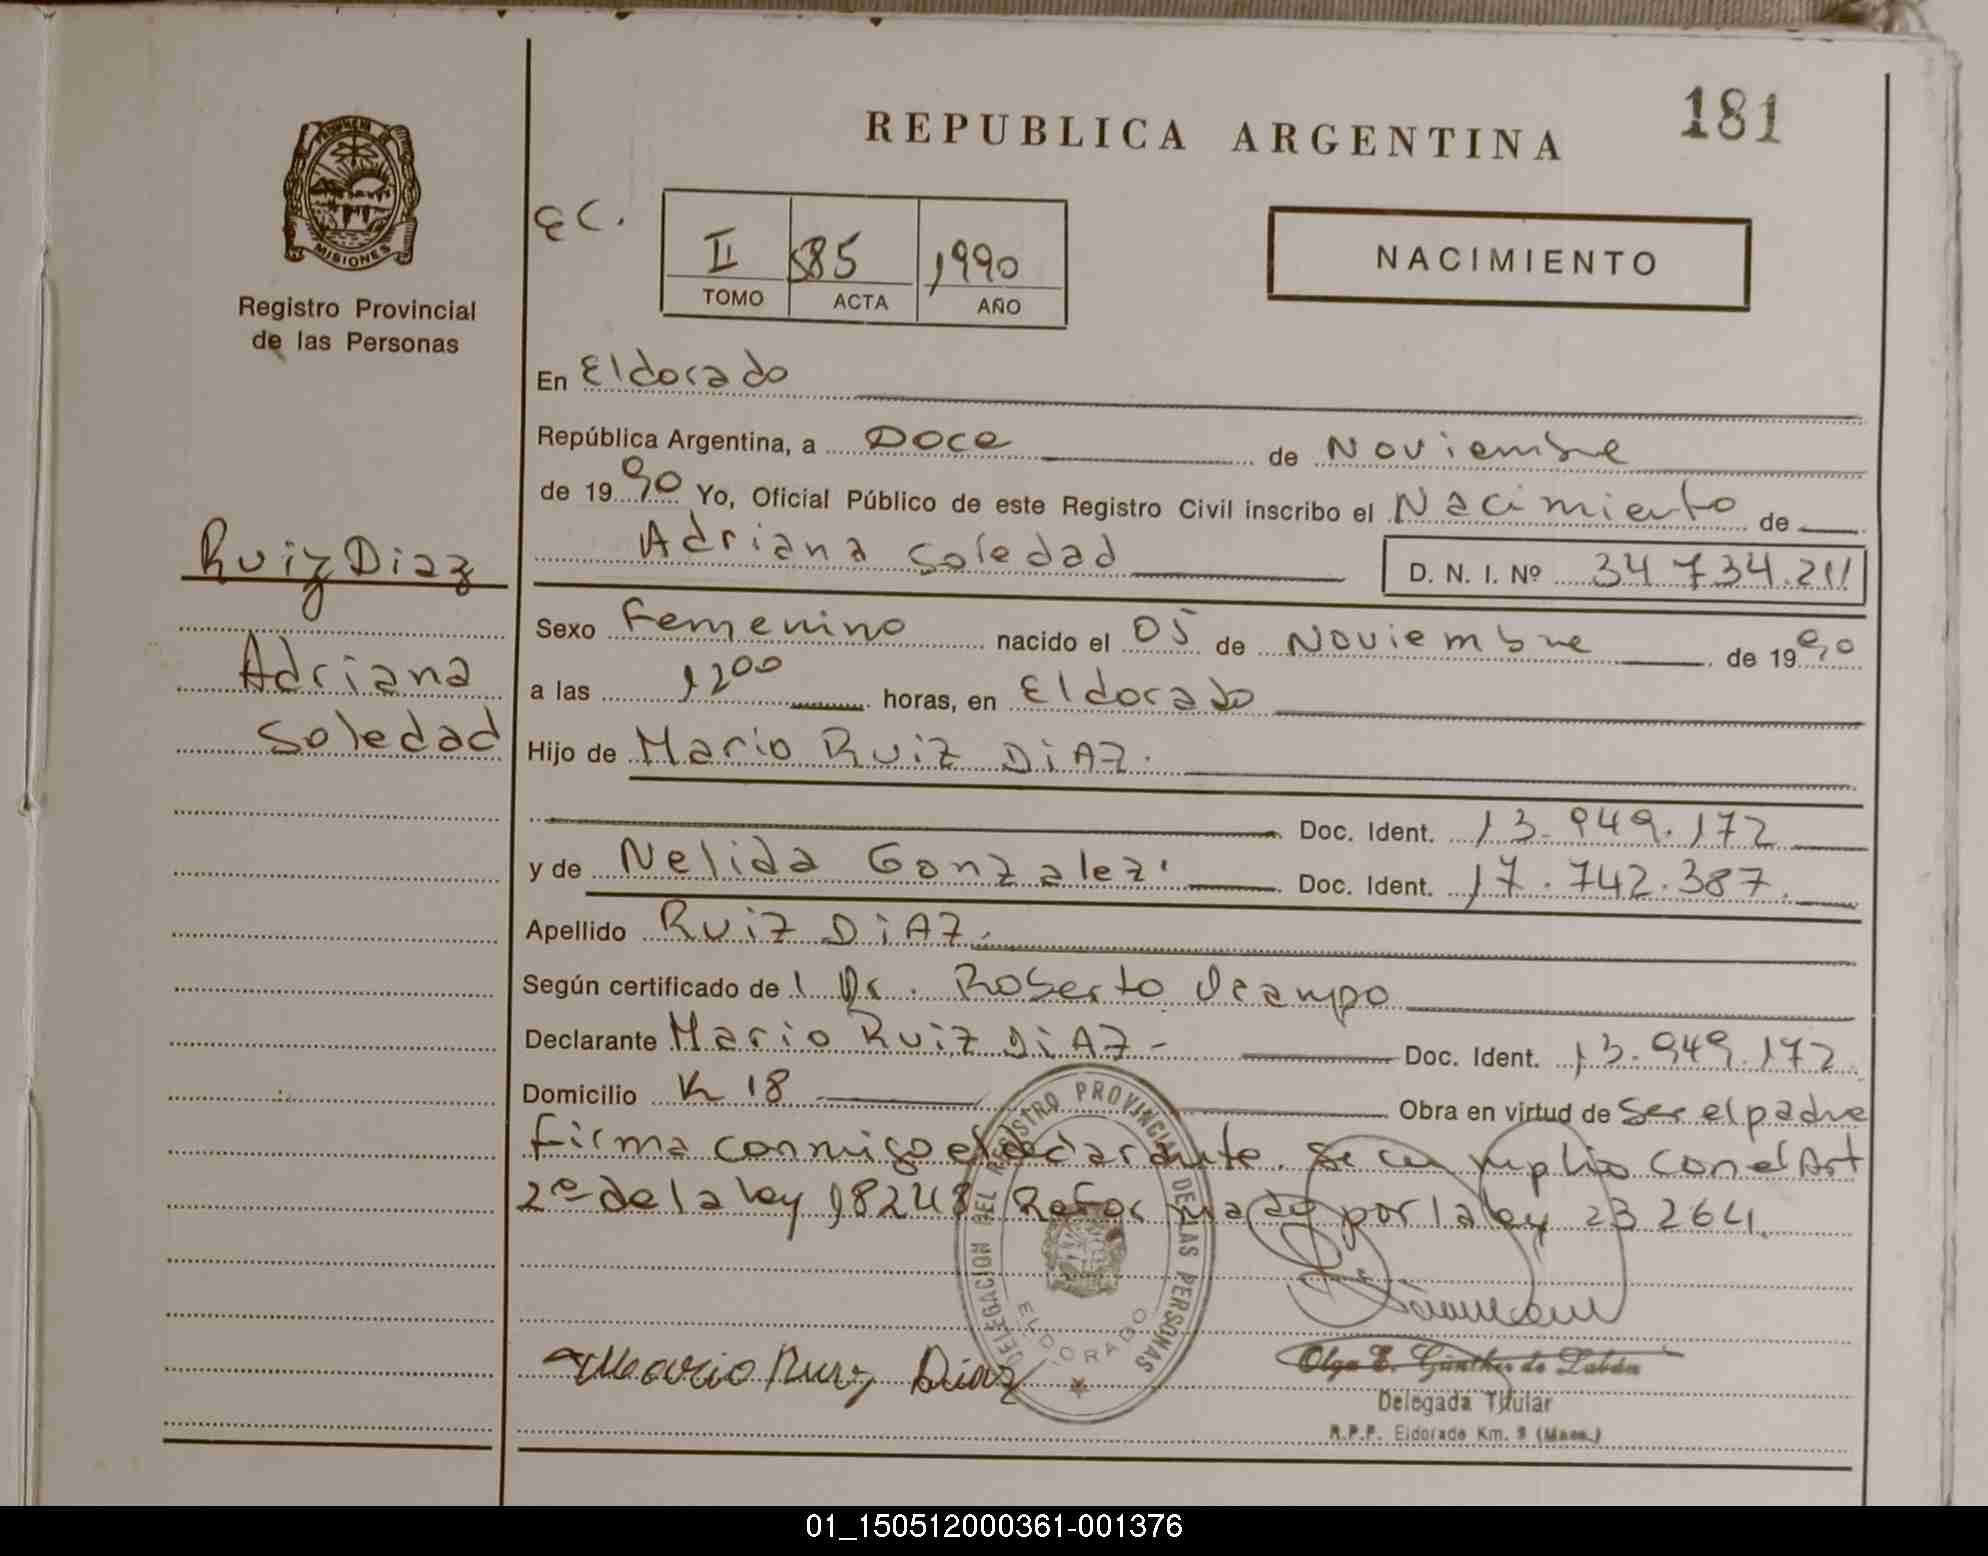 181
REPUBLICA ARGENTINA
MISIONES
Registro Provincial
de las Personas
EC.
II 585 1990
TOMO ACTA AÑO
NACIMIENTO
En Eldorado
República Argentina, a Doce de Noviembre
de 1990 Yo, Oficial Público de este Registro Civil inscribo el Nacimiento de
Adriana Soledad D. N. I. Nº 34 734.211
Ruiz Diaz
Adriana
Soledad
Sexo Femenino nacido el 05 de Noviembre de 1990
a las 1200 horas, en Eldorado
Hijo de Mario Ruiz DiAZ.
Doc. Ident. 13.949.172
y de Nelida Gonzalez. Doc. Ident. 17.742.387.
Apellido Ruiz DiAZ.
Según certificado de l Dr. Roberto Ocampo
Declarante Mario Ruiz DiAZ- Doc. Ident. 13.949.172.
Domicilio K 18 Obra en virtud de Ser el padre
Firma conmigo el declarante. Se cumplio con el Art
2º de la ley 18248 Reformado por la ley 23264.
DELEGACION DEL REGISTRO PROVINCIAL DE LAS PERSONAS
ELDORADO
Mario Ruiz Diaz
Olga E. Günther de Labán
Delegada Titular
R.P.P. Eldorado Km. 9 (Mnes.)
01_150512000361-001376